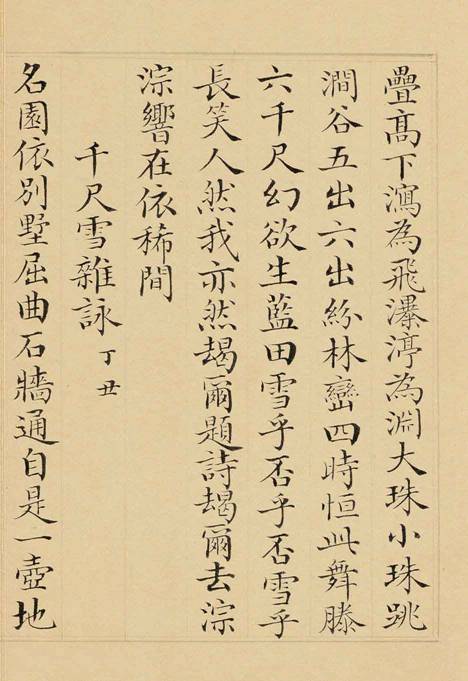 疊高下瀉為飛瀑渟為淵大珠小珠跳
澗谷五出六出紛林巒四時恒此舞滕
六千尺幻欲生藍田雪乎否乎否雪乎
長笑人然我亦然朅爾題詩朅爾去淙
淙響在依稀間
千尺雪雜詠丁丑
名園依別墅屈曲石牆通自是一壺地